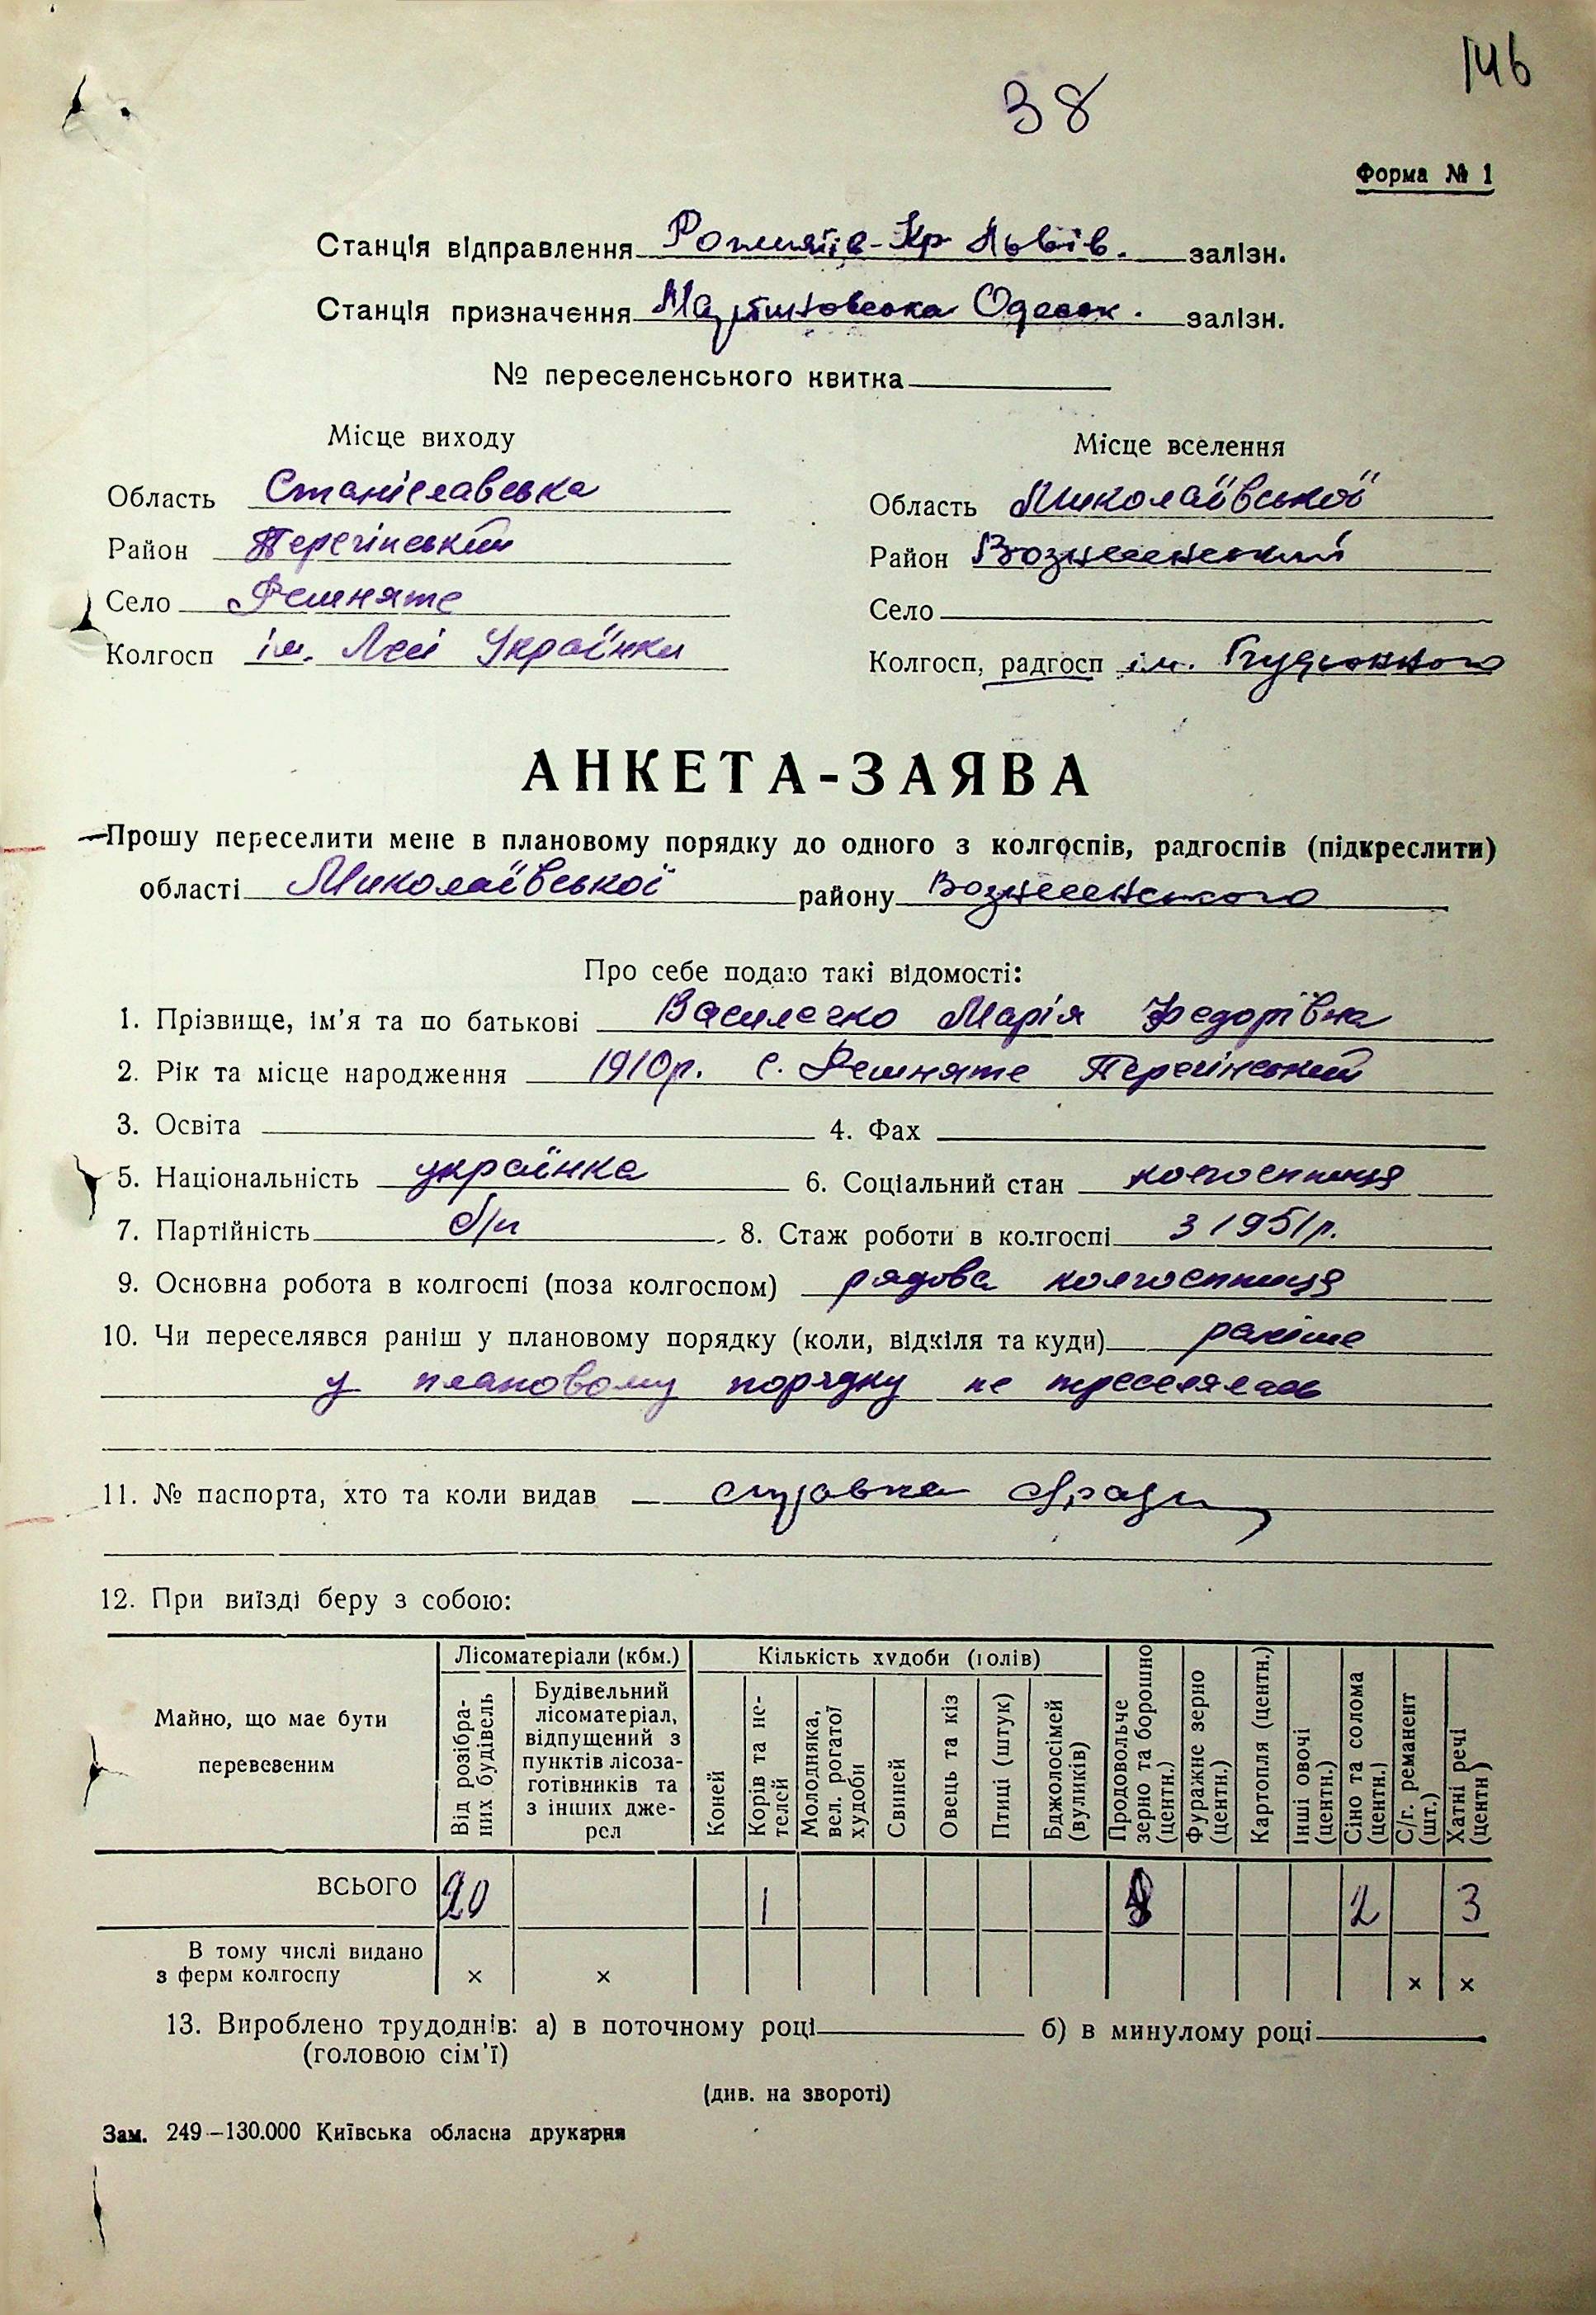 146
38
Форма № 1
Станція відправлення Рожнятів-Кр Львів. залізн.
Станція призначення Мартиновська Одеськ. залізн.
№ переселенського квитка
Місце виходу
Місце вселення
Область Станіславська
Область Миколаївської
Район Перегінський
Район Вознесенський
Село
Село
Колгосп ім. Лесі Українки
Колгосп, радгосп ім. Будьонного
АНКЕТА-ЗАЯВА
Прошу переселити мене в плановому порядку до одного з колгоспів, радгоспів (підкреслити)
області Миколаївської району Вознесенського
Про себе подаю такі відомості:
1. Прізвище, ім'я та по батькові Василечко Марія Федорівна
2. Рік та місце народження 1910р. с. Перегінський
3. Освіта 4. Фах
5. Національність українка 6. Соціальний стан колгоспниця
7. Партійність б/п 8. Стаж роботи в колгоспі з 1951р.
9. Основна робота в колгоспі (поза колгоспом) рядова колгоспниця
10. Чи переселявся раніш у плановому порядку (коли, відкіля та куди) раніше
у плановому порядку не переселялась
11. № паспорта, хто та коли видав справка
12. При виїзді беру з собою:
Майно, що має бути перевезеним
Лісоматеріали (кбм.)
Від розібраних будівель
Будівельний лісоматеріал, відпущений з пунктів лісозаготівників та з інших джерел
Кількість худоби (голів)
Коней
Корів та нетелей
Молодняка, вел. рогатої худоби
Свиней
Овець та кіз
Птиці (штук)
Бджолосімей (вуликів)
Продовольче зерно та борошно (центн.)
Фуражне зерно (центн.)
Картопля (центн.)
Інші овочі (центн.)
Сіно та солома (центн.)
С/г. реманент (шт.)
Хатні речі (центн)
ВСЬОГО 20 1 8 2 3
В тому числі видано
з ферм колгоспу × × × ×
13. Вироблено трудоднів: а) в поточному році б) в минулому році
(головою сім'ї)
(див. на звороті)
Зам. 249–130.000 Київська обласна друкарня